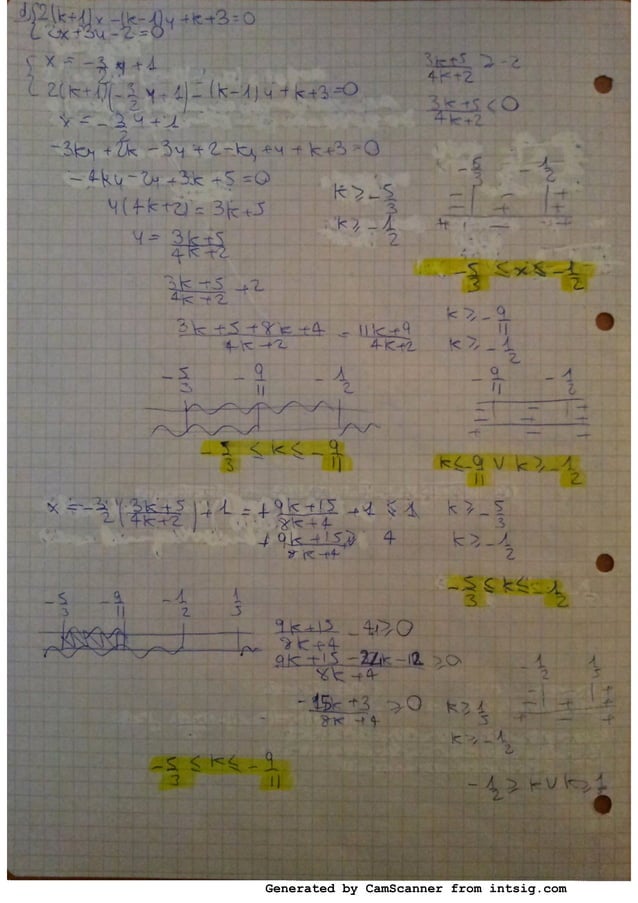 d) { 2(k+1)x-(k-1)y+k+3=0
{ 2x+3y-2=0
{ x=-3/2 y+1
{ 2(k+1)(-3/2 y+1)-(k-1)y+k+3=0
x=-3/2 y+1
-3ky+2k-3y+2-ky+y+k+3=0
-4ky-2y+3k+5=0
y(4k+2)=3k+5
y=3k+5/4k+2
3k+5/4k+2 +2
3k+5+8k+4/4k+2 = 11k+9/4k+2
3k+5/4k+2 ≥-2
3k+5/4k+2 ≤0
k≥-5/3
k≥-1/2
-5/3 -1/2
-5/3 ≤x≤-1/2
k≥-9/11
k≥-1/2
-5/3 -9/11 -1/2
-9/11 -1/2
-5/3 ≤k≤-9/11
k≤-9/11 ∨ k≥-1/2
x=-3/2(3k+5/4k+2)+1=+9k+15/8k+4 +1≤1
+9k+15/8k+4 ≥ 4
k≥-5/3
k≥-1/2
-5/3 ≤k≤-1/2
-5/3 -9/11 -1/2 1/5
9k+15/8k+4 -4≥0
9k+15-24k-12/8k+4 ≥0
-15k+3/8k+4 ≥0
k≥1/5
k≥-1/2
-1/2 1/5
-5/3 ≤k≤-9/11
-1/2 ≥k∨k≥1
Generated by CamScanner from intsig.com